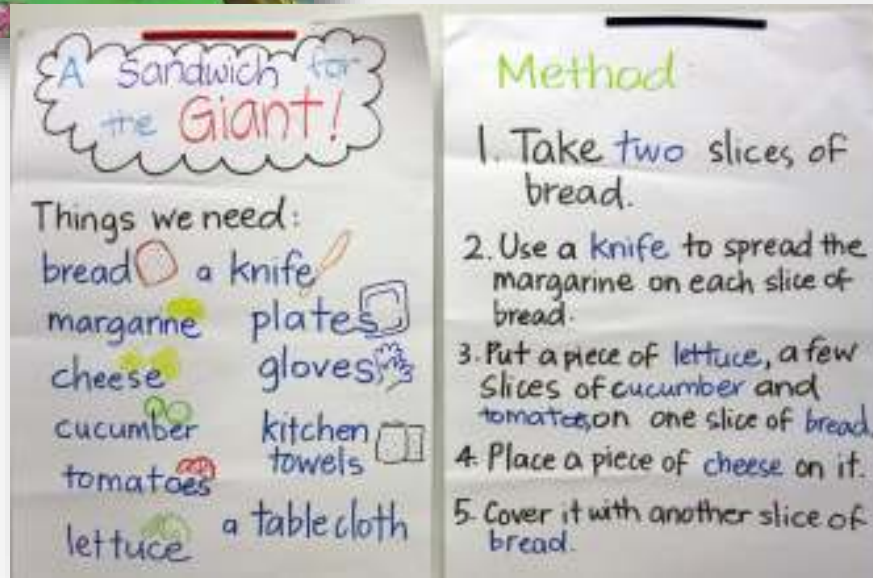 A Sandwich for
the Giant!
Things we need:
bread a knife
margarine plates
cheese gloves
cucumber kitchen
towels
tomatoes
lettuce a tablecloth
Method
1. Take two slices of
bread.
2. Use a knife to spread the
margarine on each slice of
bread.
3. Put a piece of lettuce, a few
slices of cucumber and
tomatoes on one slice of bread.
4. Place a piece of cheese on it.
5. Cover it with another slice of
bread.